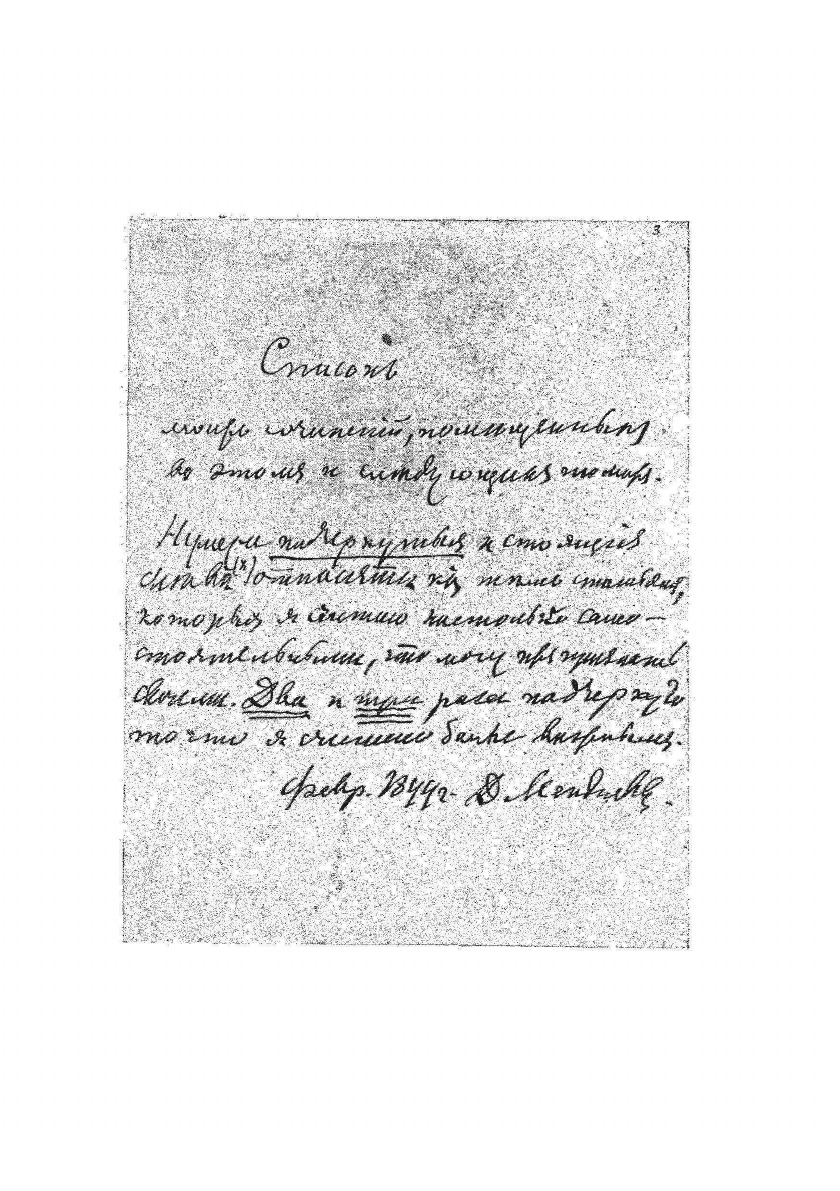 3
Списокъ
моихъ сочиненій, помѣщенныхъ
въ этомъ и слѣдующихъ томахъ.
Нумера подчеркнутыя и стоящія
слѣва (х) относятся къ тѣмъ статьямъ,
которыя я считаю настолько само-
стоятельными, что могу признавать
своими. Два и три раза подчеркнуто
то что я считаю болѣе важнымъ.
Февр. 1899 г. Д. Менделѣевъ.